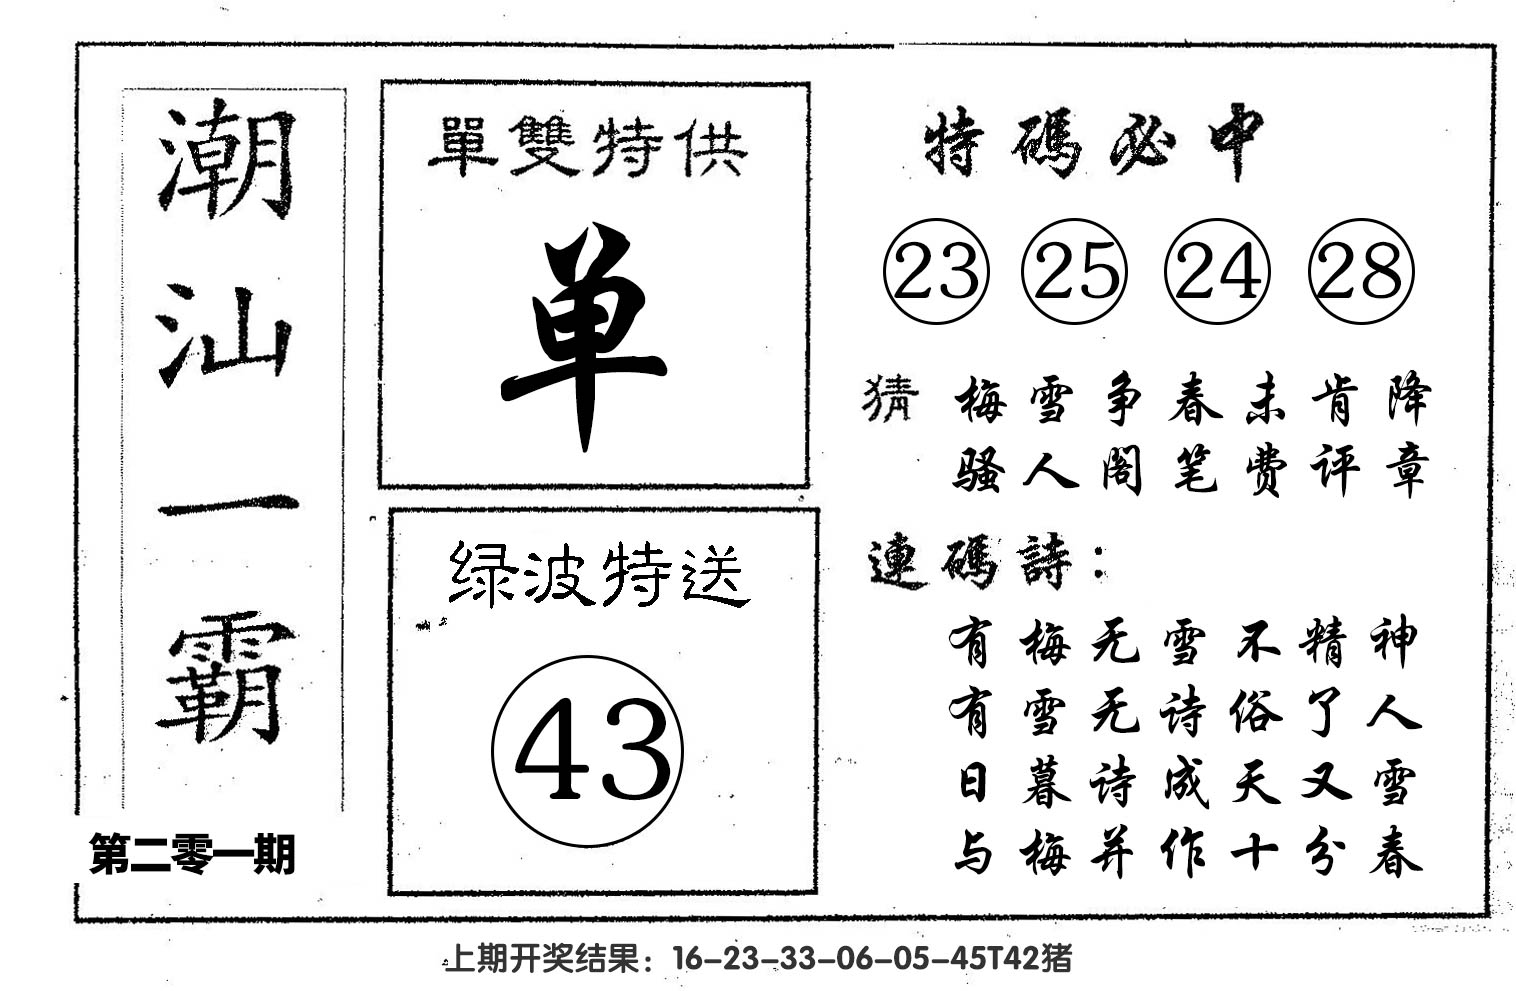 潮汕一霸
第二零一期
單雙特供
单
绿波特送
43
特碼必中
23 25 24 28
猜 梅雪争春未肯降
骚人阁笔费评章
連碼詩：
有梅无雪不精神
有雪无诗俗了人
日暮诗成天又雪
与梅并作十分春
上期开奖结果：16-23-33-06-05-45T42猪